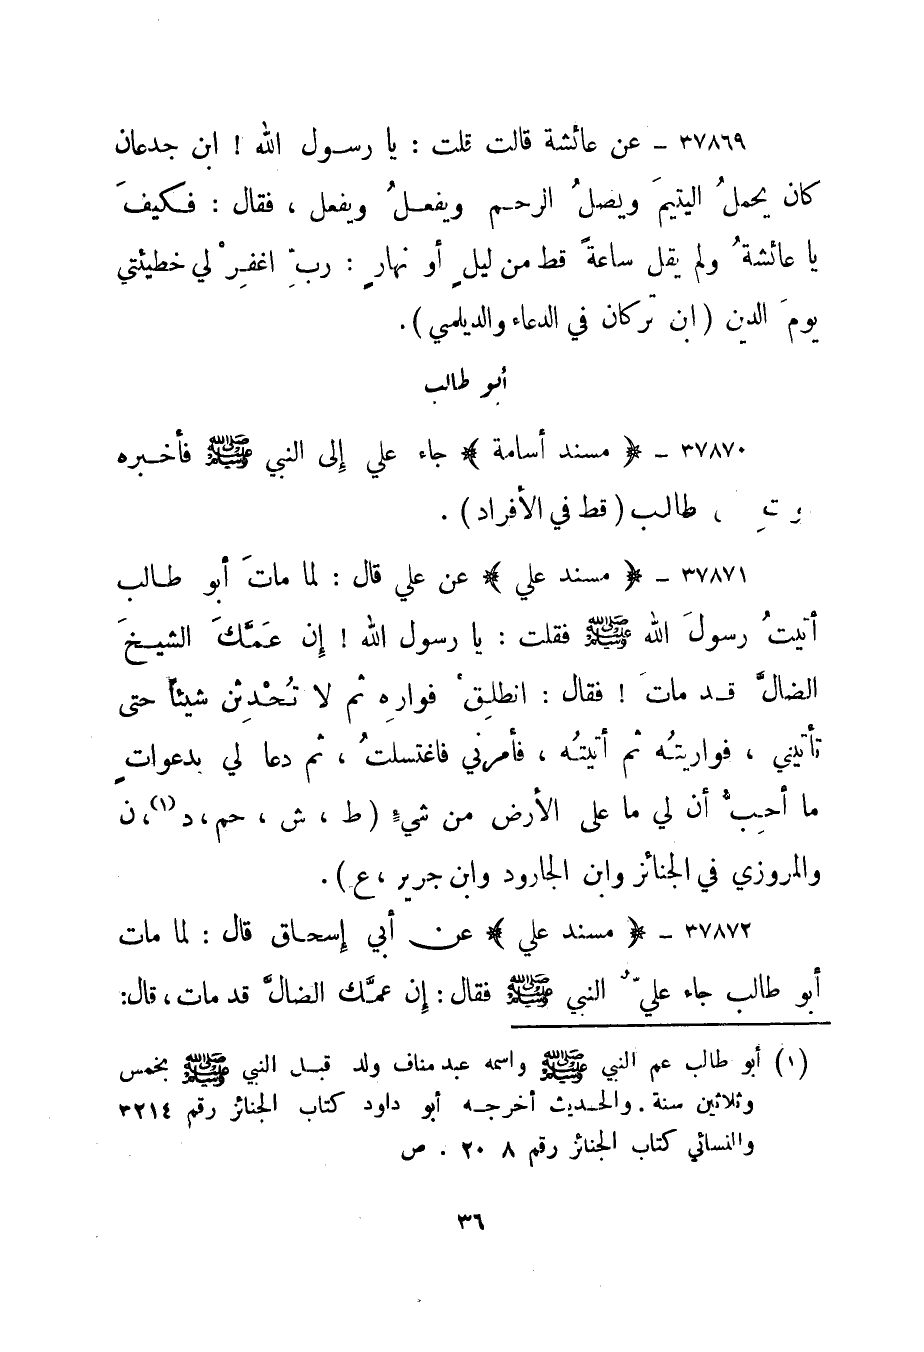 ٣٧٨٦٩ – عن عائشة قالت قلت : يا رسول الله ! ابن جدعان
كان يحملُ اليتيمَ ويصلُ الرحم ويفعلُ ويفعل ، فقال : فكيفَ
يا عائشةُ ولم يقل ساعةً قط من ليلٍ أو نهارٍ : ربِّ اغفِرْ لي خطيئتي
يومَ الدين ( ابن تركان في الدعاء والديلمي ) .
أبو طالب
٣٧٨٧٠ – ﴿ مسند أسامة ﴾ جاء علي إلى النبي ﷺ فأخبره
طالب ( قط في الأفراد ) .
٣٧٨٧١ – ﴿ مسند علي ﴾ عن علي قال : لما ماتَ أبو طالب
أتيتُ رسولَ الله ﷺ فقلت : يا رسول الله ! إن عَمَّكَ الشيخَ
الضالَّ قد ماتَ ! فقال : انطلِقْ فوارِه ثم لا تُحْدِثن شيئاً حتى
تأتيني ، فواريتُه ثم أتيتُه ، فأمرني فاغتسلتُ ، ثم دعا لي بدعواتٍ
ما أحِبُّ أن لي ما على الأرض من شيءٍ ( ط ، ش ، حم ، د (١) ، ن
والمروزي في الجنائز وابن الجارود وابن جرير ، ع ) .
٣٧٨٧٢ – ﴿ مسند علي ﴾ عن أبي إسحاق قال : لما مات
أبو طالب جاء عليٌّ النبي ﷺ فقال : إن عمَّك الضالَّ قد مات ، قال :
(١) أبو طالب عم النبي ﷺ واسمه عبد مناف ولد قبل النبي ﷺ بخمس
وثلاثين سنة . والحديث أخرجه أبو داود كتاب الجنائز رقم ٣٢١٤
والنسائي كتاب الجنائز رقم ٢٠٠٨ . ص
٣٦